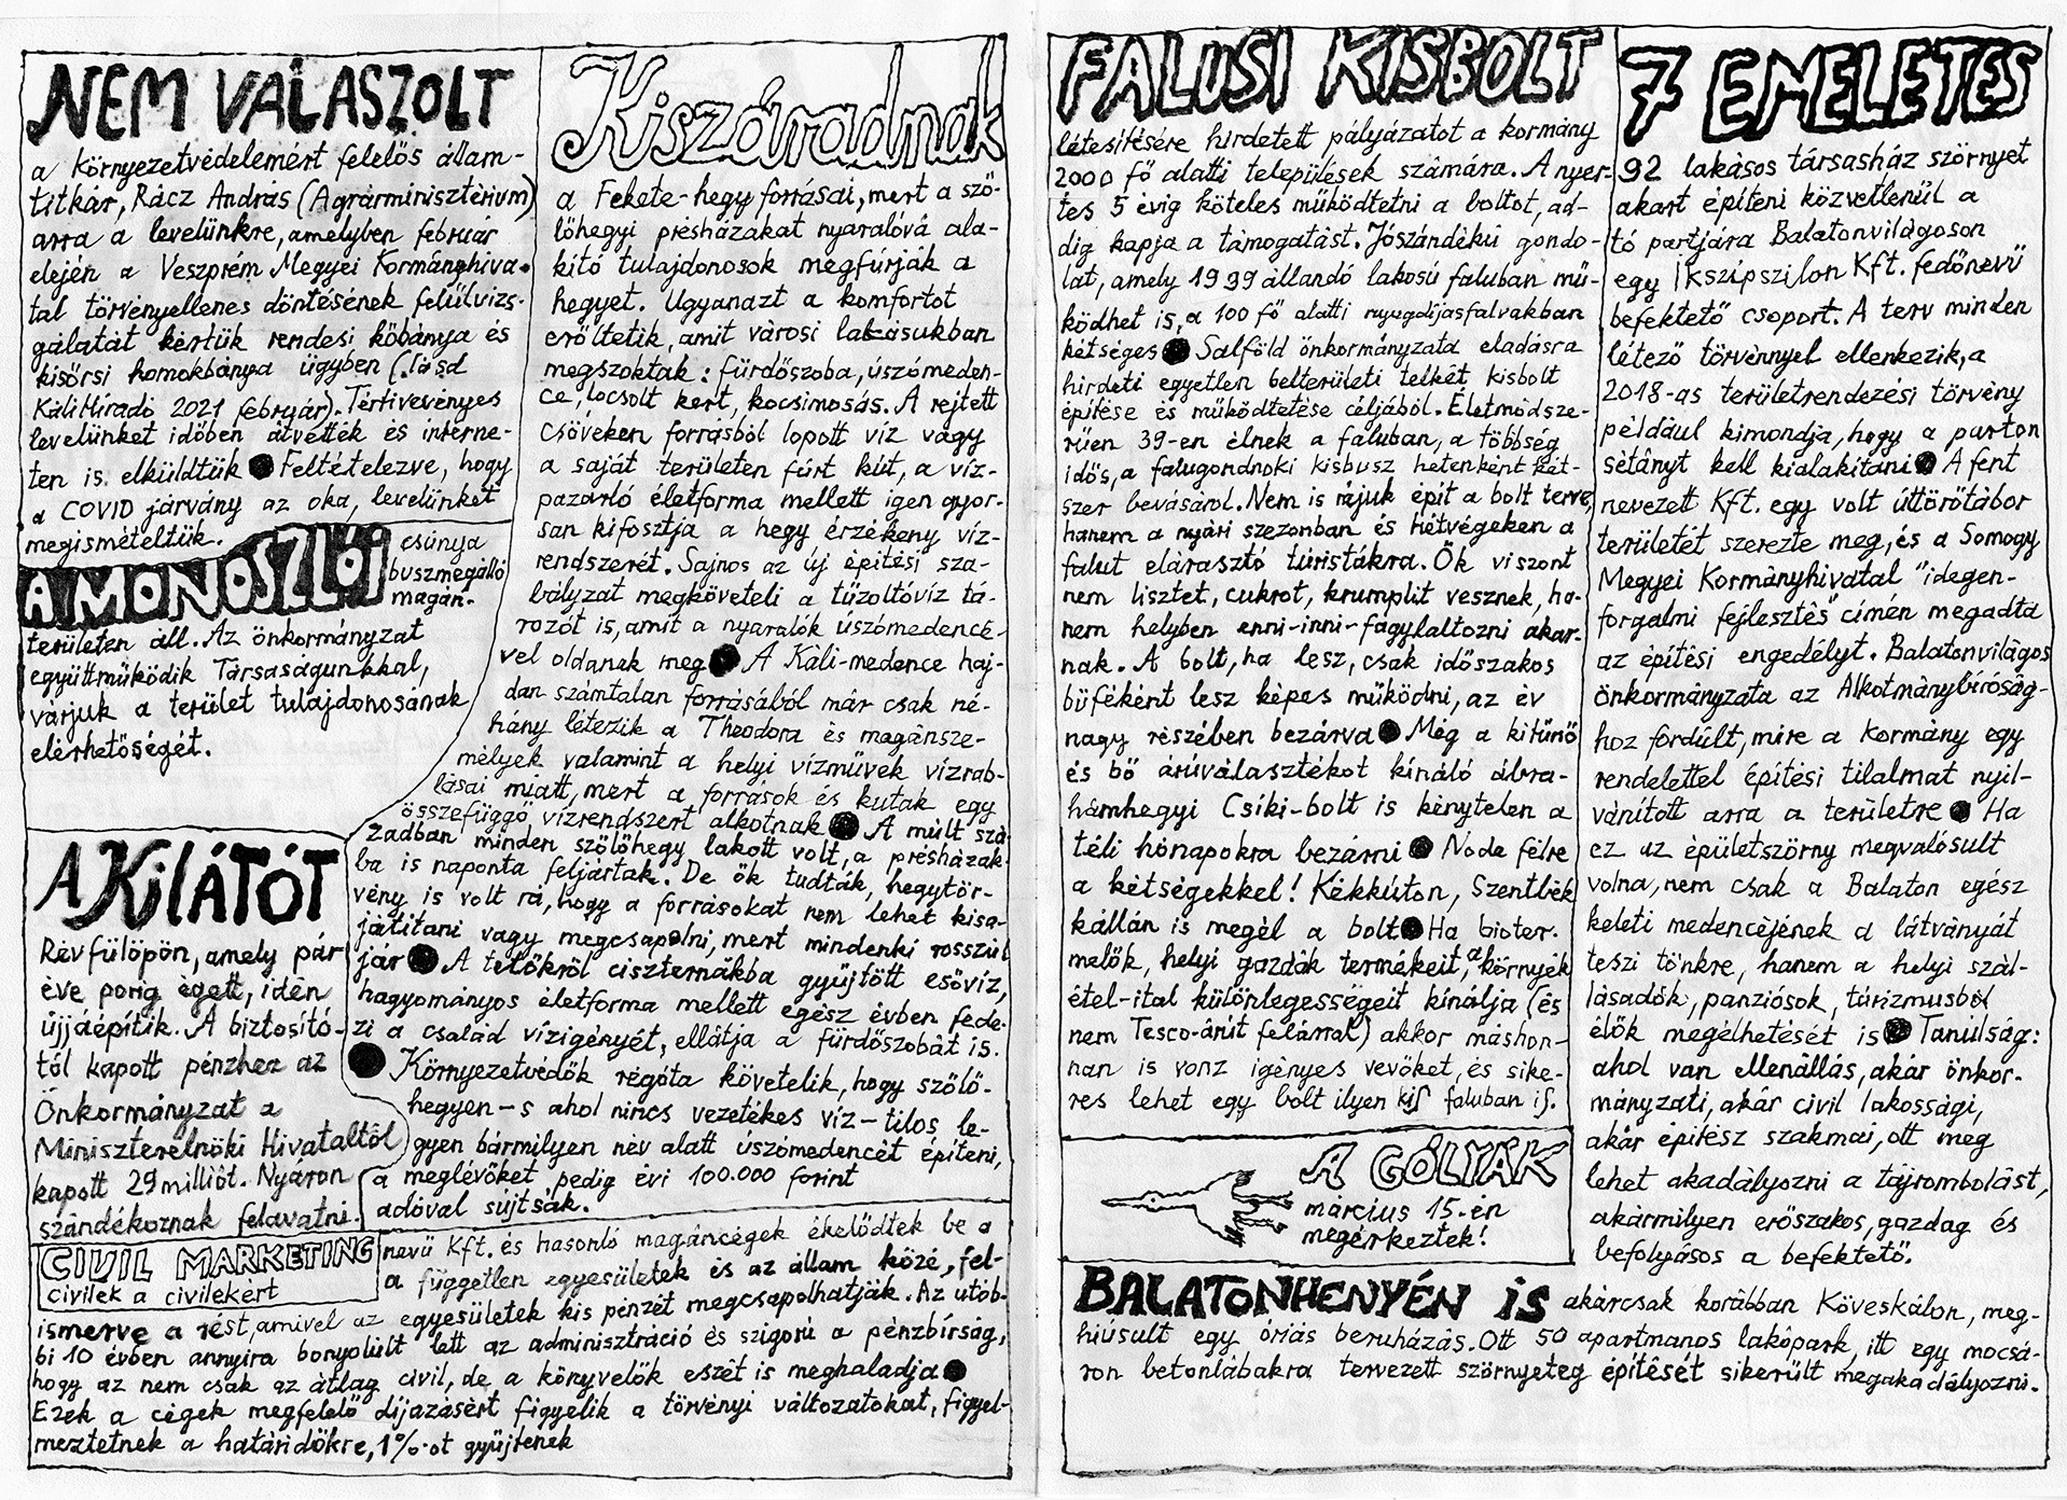 NEM VÁLASZOLT
a Környezetvédelemért felelős állam-
titkár, Rácz András (Agrárminisztérium)
arra a levelünkre, amelyben február
elején a Veszprém Megyei Kormányhiva-
tal törvényellenes döntésének felülvizs-
gálatát kértük rendesi kőbánya és
kisőrsi homokbánya ügyben (lásd
KáliHíradó 2021 február). Tértivevényes
levelünket időben átvették és interne-
ten is elküldtük ● Feltételezve, hogy
a COVID járvány az oka, levelünket
megismételtük.
A MONOSZLÓI
csúnya
buszmegálló
magán-
területen áll. Az önkormányzat
együttműködik Társaságunkkal,
várjuk a terület tulajdonosának
elérhetőségét.
A KILÁTÓT
Révfülöpön, amely pár
éve porig égett, idén
újjáépítik. A biztosító-
tól kapott pénzhez az
Önkormányzat a
Miniszterelnöki Hivataltól
kapott 29 milliót. Nyáron
szándékoznak felavatni.
Kiszáradnak
a Fekete-hegy forrásai, mert a sző-
lőhegyi présházakat nyaralóvá ala-
kító tulajdonosok megfúrják a
hegyet. Ugyanazt a komfortot
erőltetik, amit városi lakásukban
megszoktak: fürdőszoba, úszómeden-
ce, locsolt kert, kocsimosás. A rejtett
csöveken forrásból lopott víz vagy
a saját területen fúrt kút, a víz-
pazarló életforma mellett igen gyor-
san kifosztja a hegy érzékeny víz-
rendszerét. Sajnos az új építési sza-
bályzat megköveteli a tűzoltóvíz tá-
rozót is, amit a nyaralók úszómedencé-
vel oldanak meg ● A Káli-medence haj-
dan számtalan forrásából már csak né-
hány létezik a Theodora és magánsze-
mélyek valamint a helyi vízművek vízrab-
lásai miatt, mert a források és kutak egy
összefüggő vízrendszert alkotnak ● A múlt szá-
zadban minden szőlőhegy lakott volt, a présházak-
ba is naponta feljártak. De ők tudták, hegytör-
vény is volt rá, hogy a forrásokat nem lehet kisa-
játítani vagy megcsapolni, mert mindenki rosszul
jár ● A tetőkről ciszternákba gyűjtött esővíz,
hagyományos életforma mellett egész évben fede-
zi a család vízigényét, ellátja a fürdőszobát is.
● Környezetvédők régóta követelik, hogy szőlő-
hegyen – s ahol nincs vezetékes víz – tilos le-
gyen bármilyen név alatt úszómedencét építeni,
a meglévőket pedig évi 100.000 forint
adóval sújtsák.
CIVIL MARKETING
civilek a civilekért
nevű Kft. és hasonló magáncégek ékelődtek be a
a független egyesületek és az állam közé, fel-
ismerve a rést, amivel az egyesületek kis pénzét megcsapolhatják. Az utób-
bi 10 évben annyira bonyolult lett az adminisztráció és szigorú a pénzbírság,
hogy az nem csak az átlag civil, de a könyvelők eszét is meghaladja ●
Ezek a cégek megfelelő díjazásért figyelik a törvényi változatokat, figyel-
meztetnek a határidőkre, 1%-ot gyűjtenek
FALUSI KISBOLT
létesítésére hirdetett pályázatot a kormány
2000 fő alatti települések számára. A nyer-
tes 5 évig köteles működtetni a boltot, ad-
dig kapja a támogatást. Jószándékú gondo-
lat, amely 1999 állandó lakosú faluban mű-
ködhet is, a 100 fő alatti nyugdíjasfalvakban
kétséges ● Salföld önkormányzata eladásra
hirdeti egyetlen belterületi telkét kisbolt
építése és működtetése céljából. Életmódsze-
rűen 39-en élnek a faluban, a többség
idős, a falugondnoki kisbusz hetenként két-
szer bevásárol. Nem is rájuk épít a bolt terve,
hanem a nyári szezonban és hétvégeken a
falut elárasztó turistákra. Ők viszont
nem lisztet, cukrot, krumplit vesznek, ha-
nem helyben enni-inni-fagylaltozni akar-
nak. A bolt, ha lesz, csak időszakos
büféként lesz képes működni, az év
nagy részében bezárva ● Még a kitűnő
és bő áruválasztékot kínáló ábra-
hámhegyi Csíki-bolt is kénytelen a
téli hónapokra bezárni ● No de félre
a kétségekkel! Kékkúton, Szentbék
kállán is megél a bolt ● Ha bioter-
melők, helyi gazdák termékeit, a környék
étel-ital különlegességeit kínálja (és
nem Tesco-árút felárral) akkor máshon-
nan is vonz igényes vevőket, és sike-
res lehet egy bolt ilyen kis faluban is.
A GÓLYÁK
március 15-én
megérkeztek!
7 EMELETES
92 lakásos társasház szörnyet
akart építeni közvetlenül a
tó partjára Balatonvilágoson
egy Ikszipszilon Kft. fedőnevű
befektető csoport. A terv minden
létező törvénnyel ellenkezik, a
2018-as területrendezési törvény
például kimondja, hogy a parton
sétányt kell kialakítani ● A fent
nevezett Kft. egy volt úttörőtábor
területét szerezte meg, és a Somogy
Megyei Kormányhivatal "idegen-
forgalmi fejlesztés" címén megadta
az építési engedélyt. Balatonvilágos
önkormányzata az Alkotmánybíróság-
hoz fordult, mire a Kormány egy
rendelettel építési tilalmat nyil-
vánított arra a területre ● Ha
ez az épületszörny megvalósult
volna, nem csak a Balaton egész
keleti medencéjének a látványát
teszi tönkre, hanem a helyi szál-
lásadók, panziósok, turizmusból
élők megélhetését is ● Tanulság:
ahol van ellenállás, akár önkor-
mányzati, akár civil lakossági,
akár építész szakmai, ott meg
lehet akadályozni a tájrombolást,
akármilyen erőszakos, gazdag és
befolyásos a befektető.
BALATONHENYÉN IS akárcsak korábban Köveskálon, meg-
hiúsult egy óriás beruházás. Ott 50 apartmanos lakópark, itt egy mocsá-
ron betonlábakra tervezett szörnyeteg építését sikerült megakadályozni.